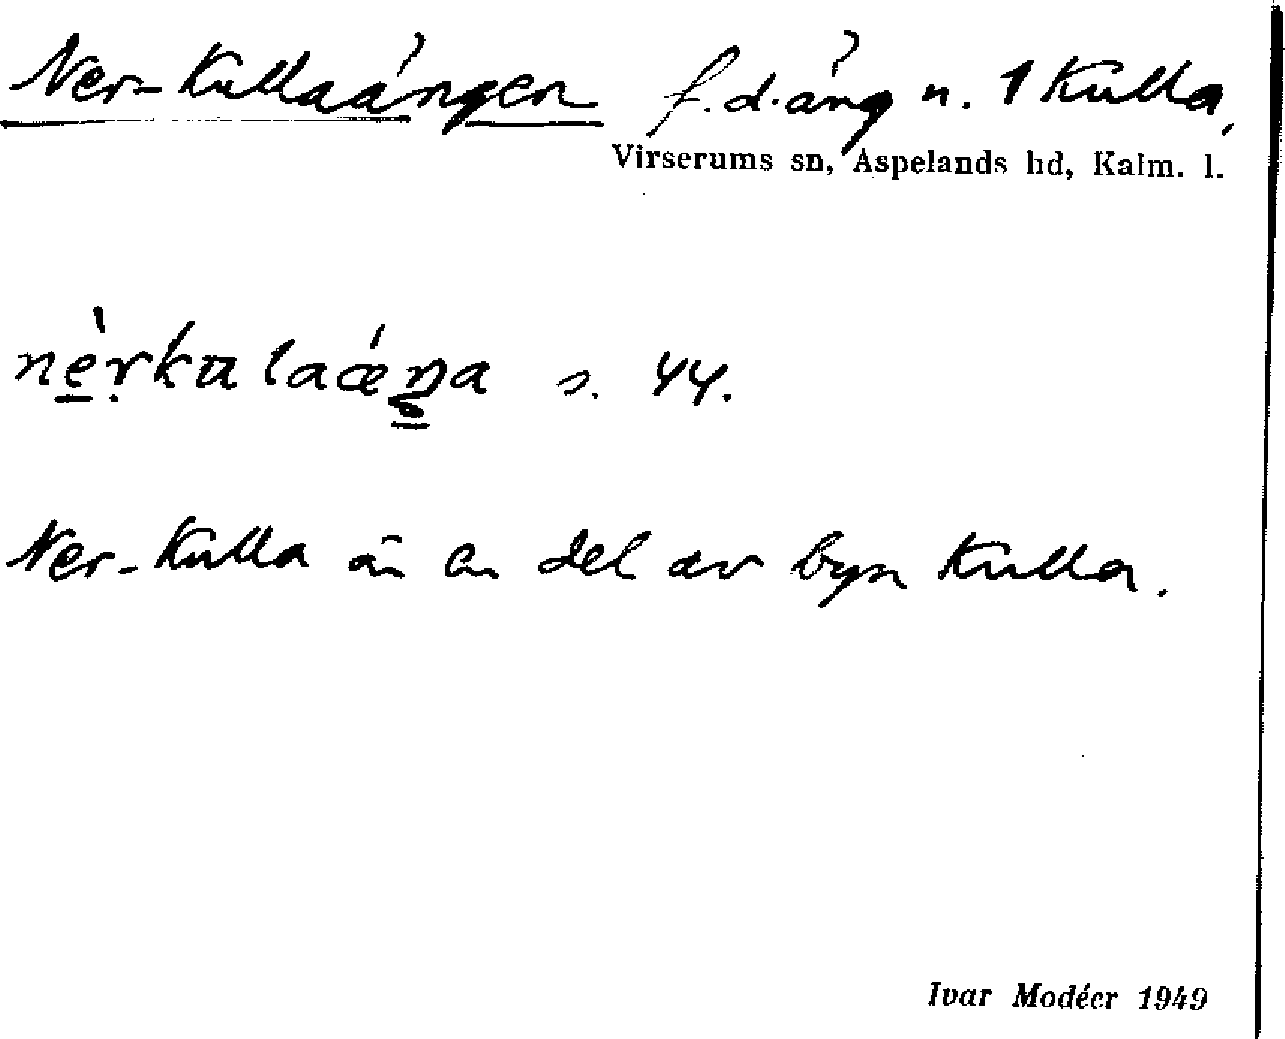 Ner-Kullaängen f.d. äng n. 1 Kulla,
Virserums sn, Aspelands hd, Kalm. l.
nè̱ṛkulaáŋa s. 44.
Ner-Kulla är en del av byn Kulla.
Ivar Modéer 1949